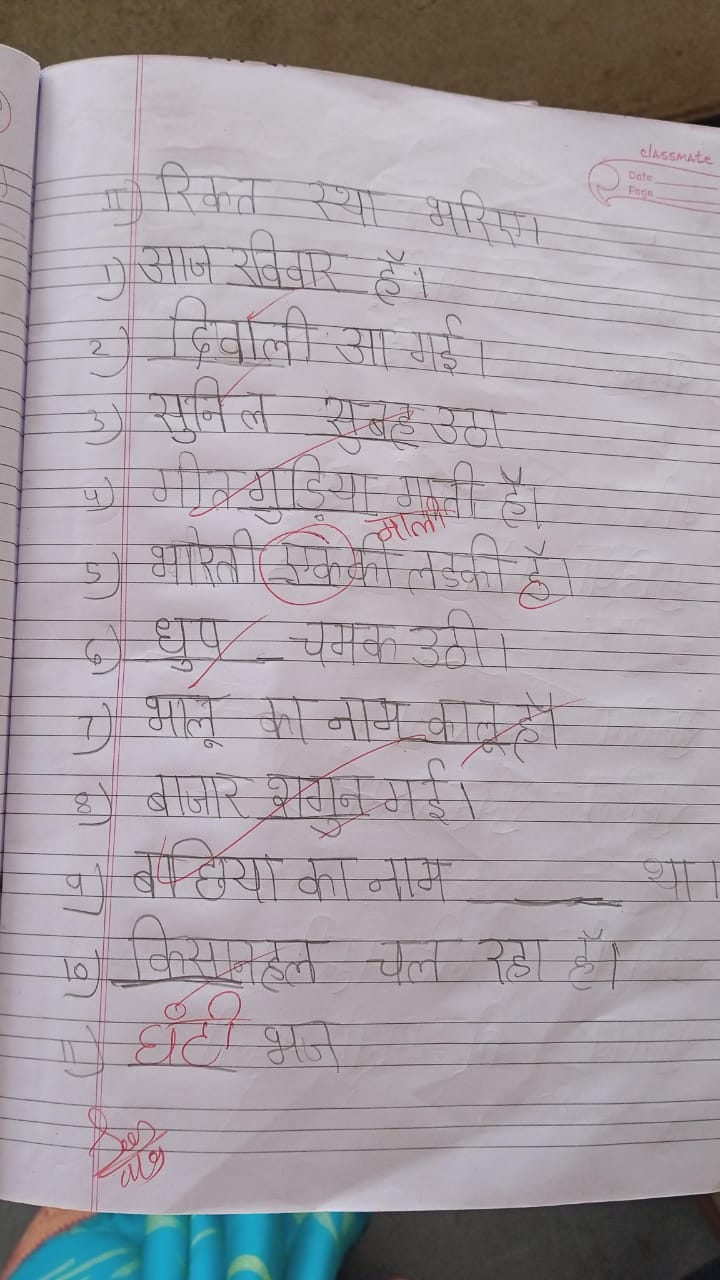 classmate
Date
Page
II) रिकत स्था भरिए।
1) आज रविवार हैं।
2) दिवाली आ गई।
3) सुनिल सुबह उठा
4) गीत गुड़िया गाती हैं।
माली
5) भारती एक की लडकी हैं।
6) धुप चमक उठी।
7) भालू का नाम कालू हैं।
8) बाजार शगुन गई।
9) बछिया का नाम ______ था।
10) किसान हल चल रहा हैं।
11) घंटी भज